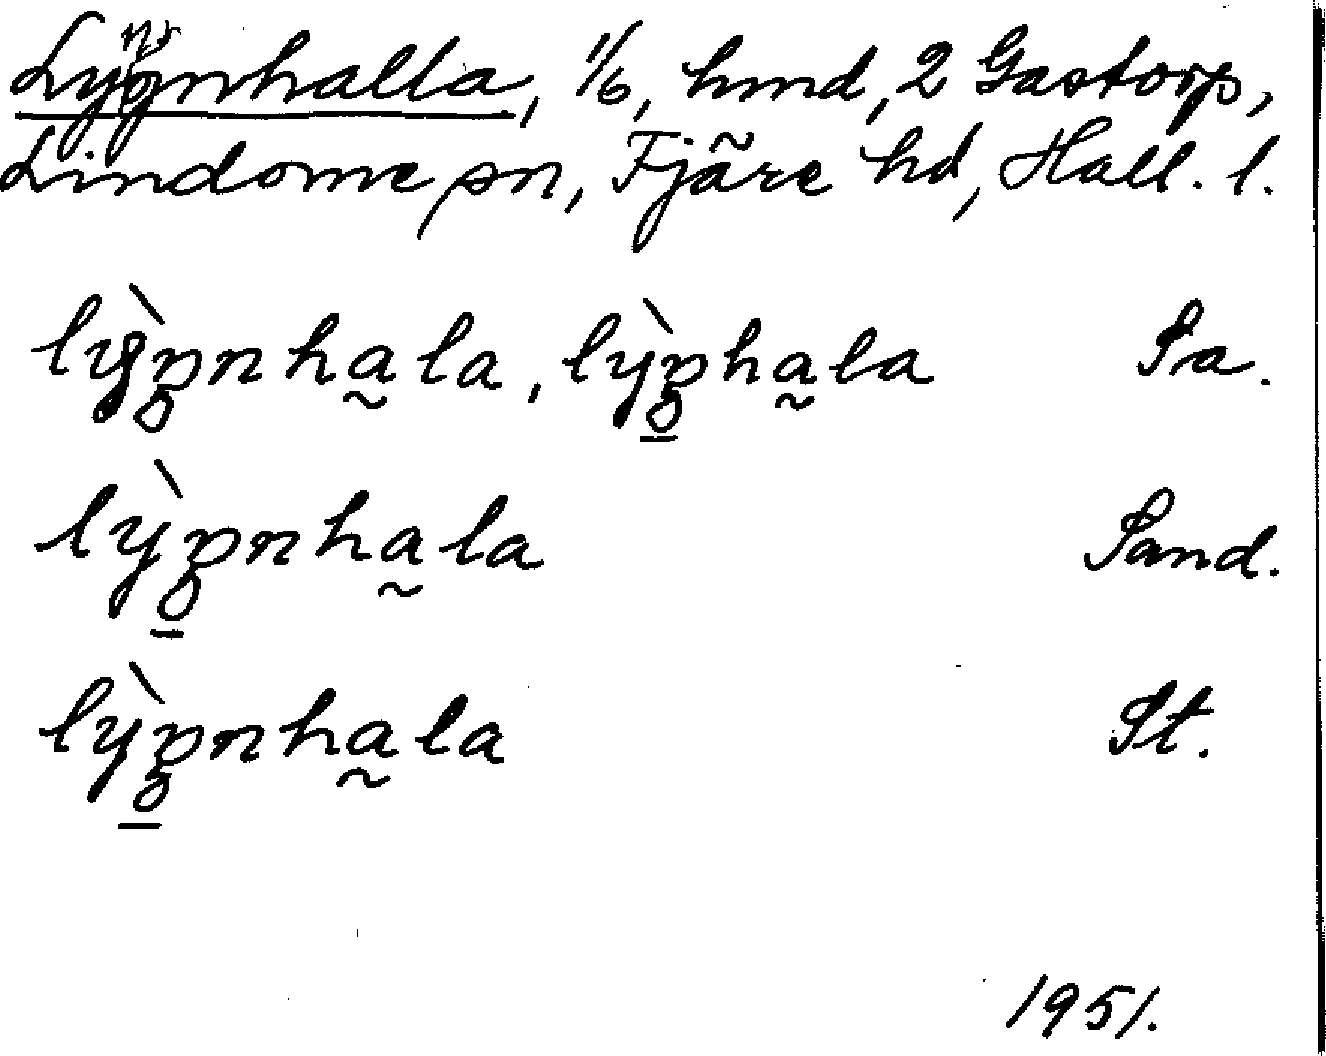 Lygnhalla, 1/6, hmd, 2 Gastorp,
Lindome sn, Fjäre hd, Hall. l.
lỳŋnha̰la, lỳŋha̰la Sa.
lỳŋnha̰la Sand.
lỳŋnha̰la St.
1951.